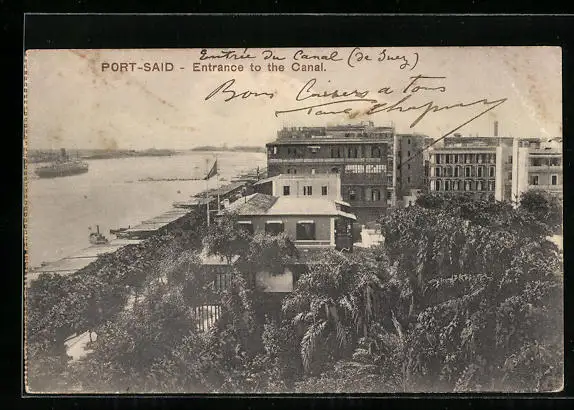 Entrée du Canal (de Suez)
PORT-SAID - Entrance to the Canal.
Bons Baisers a tous